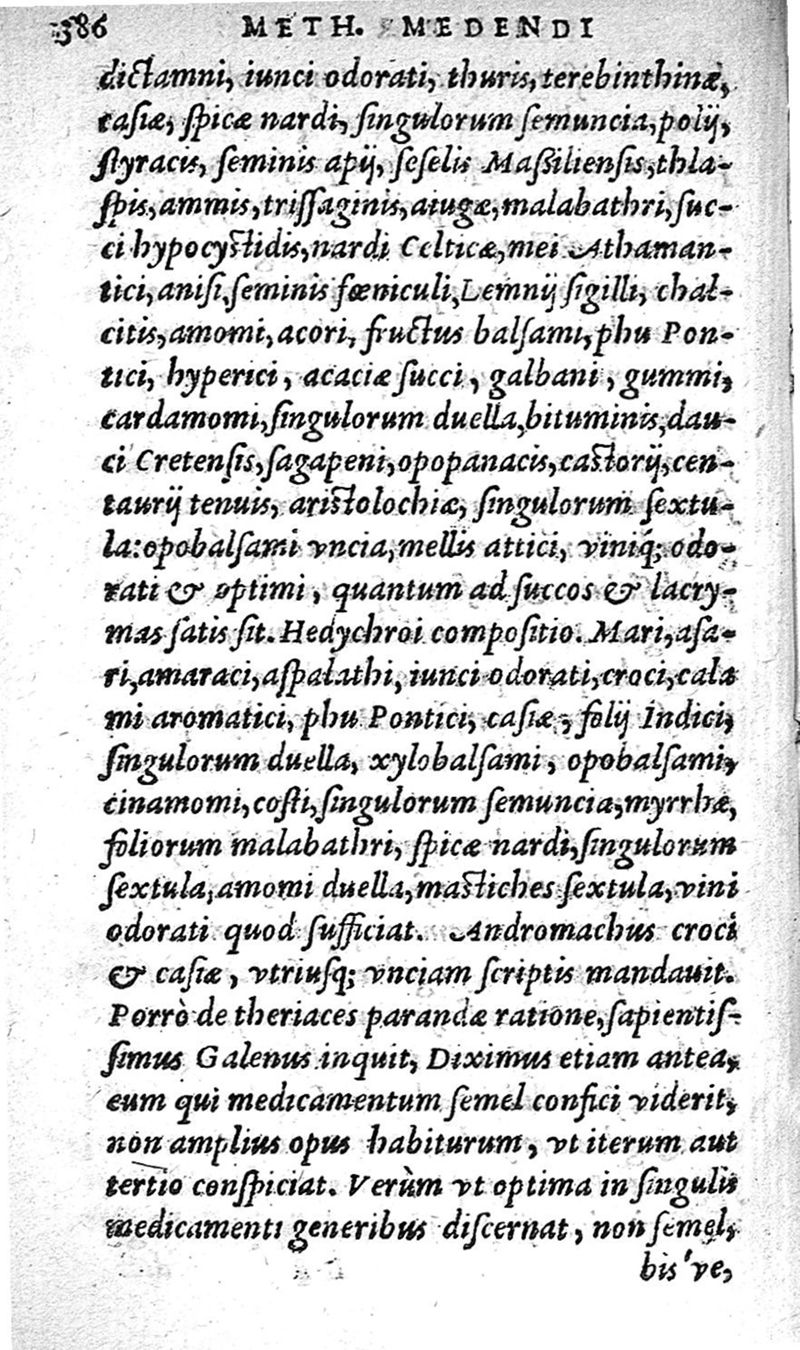 386 METH. MEDENDI
dictamni, iunci odorati, thuris, terebinthinæ,
casiæ, spicæ nardi, singulorum semuncia, polij,
styracis, seminis apij, seselis Massiliensis, thla-
spis, ammis, trissaginis, aiugæ, malabathri, suc-
ci hypocystidis, nardi Celticæ, mei Athaman-
tici, anisi, seminis fœniculi, Lemnij sigilli, chal-
citis, amomi, acori, fructus balsami, phu Pon-
tici, hyperici, acaciæ succi, galbani, gummi,
cardamomi, singulorum duella, bituminis, dau-
ci Cretensis, sagapeni, opopanacis, castorij, cen-
taurij tenuis, aristolochiæ, singulorum sextu-
la: opobalsami vncia, mellis attici, viniq́; odo-
rati & optimi, quantum ad succos & lacry-
mas satis sit. Hedychroi compositio. Mari, asa-
ri, amaraci, aspalathi, iunci odorati, croci, cala
mi aromatici, phu Pontici, casiæ, folij Indici,
singulorum duella, xylobalsami, opobalsami,
cinamomi, costi, singulorum semuncia, myrrhæ,
foliorum malabathri, spicæ nardi, singulorum
sextula, amomi duella, mastiches sextula, vini
odorati quod sufficiat. Andromachus croci
& casiæ, vtriusq; vnciam scriptis mandauit.
Porrò de theriaces parandæ ratione, sapientis-
simus Galenus inquit, Diximus etiam antea,
eum qui medicamentum semel confici viderit,
non amplius opus habiturum, vt iterum aut
tertio conspiciat. Verùm vt optima in singulis
medicamenti generibus discernat, non semel,
bis 've,